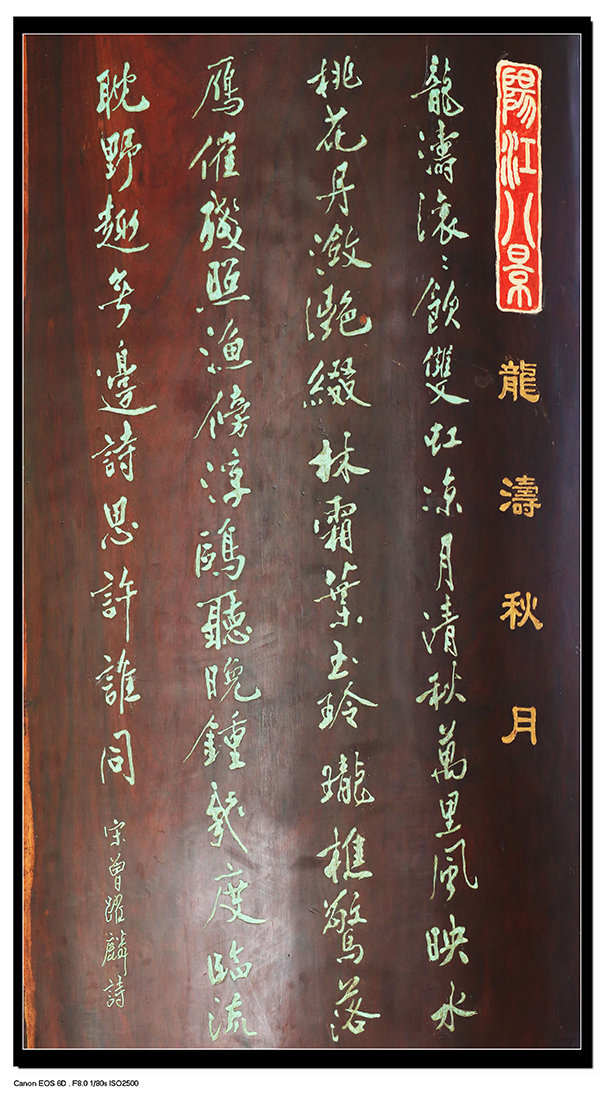 陽江八景
龍濤秋月
龍濤滾〻飲雙虹凉月清秋萬里風映水
桃花丹瀲灔綴林霜葉玉玲瓏樵驚落
雁催殘照漁傍浮鷗聽晚鍾幾度臨流
耽野趣無邊詩思許誰同
宋曾躍麟詩
Canon EOS 6D . F8.0 1/80s ISO2500